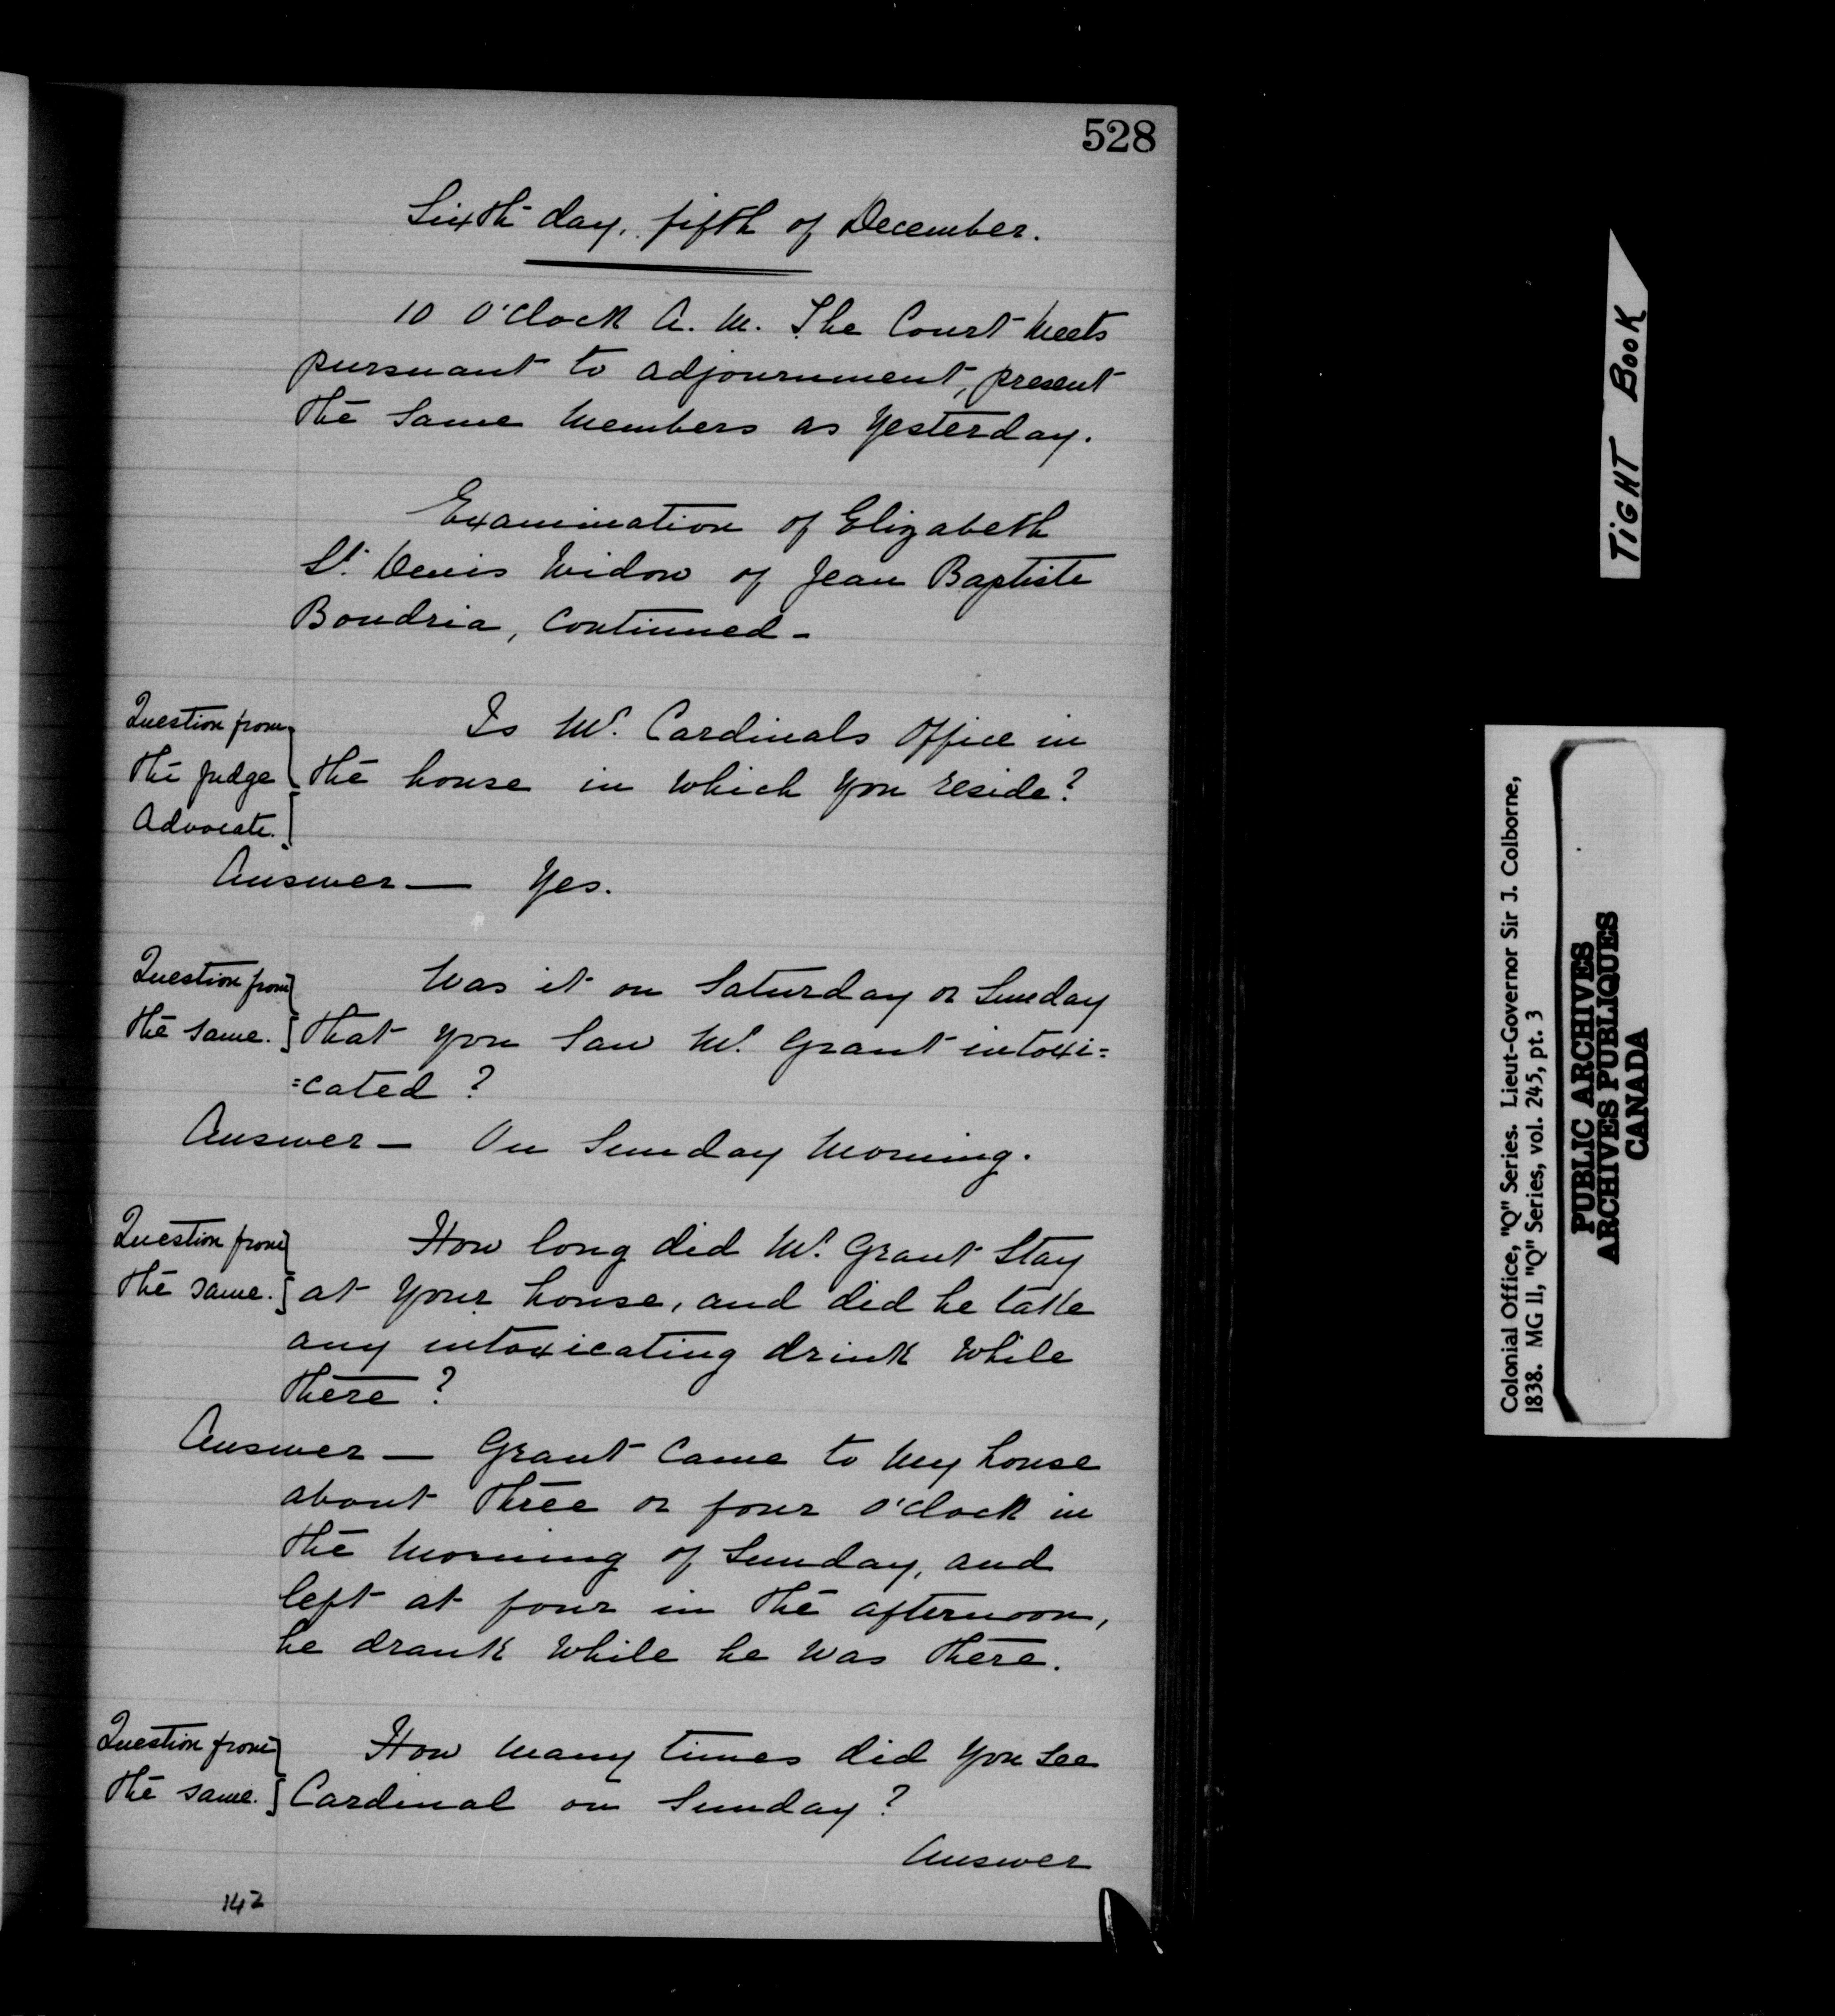 528
Sixth day, fifth of December.
10 O'Clock A. M. The Court Meets
pursuant to adjournment, present
the Same Members as Yesterday.
Examination of Elizabeth
St. Denis Widow of Jean Baptiste
Boudria, Continued -
Question from
the Judge
Advocate.
Is Mr. Cardinals Office in
the house in which you reside?
Answer — Yes.
Question from
the same.
Was it on Saturday or Sunday
that you Saw Mr. Grant intoxi=
=cated ?
Answer — On Sunday Morning.
Question from
the same.
How long did Mr. Grant Stay
at Your house, and did he take
any intoxicating drink While
there ?
Answer — Grant Came to My house
about three or four o'clock in
the Morning of Sunday, and
left at four in the afternoon,
he drank While he Was there.
Question from
the same.
How Many times did You See
Cardinal on Sunday ?
Answer
142
TIGHT BOOK
Colonial Office, "Q" Series. Lieut-Governor Sir J. Colborne,
1838. MG 11, "Q" Series, vol. 245, pt. 3
PUBLIC ARCHIVES
ARCHIVES PUBLIQUES
CANADA